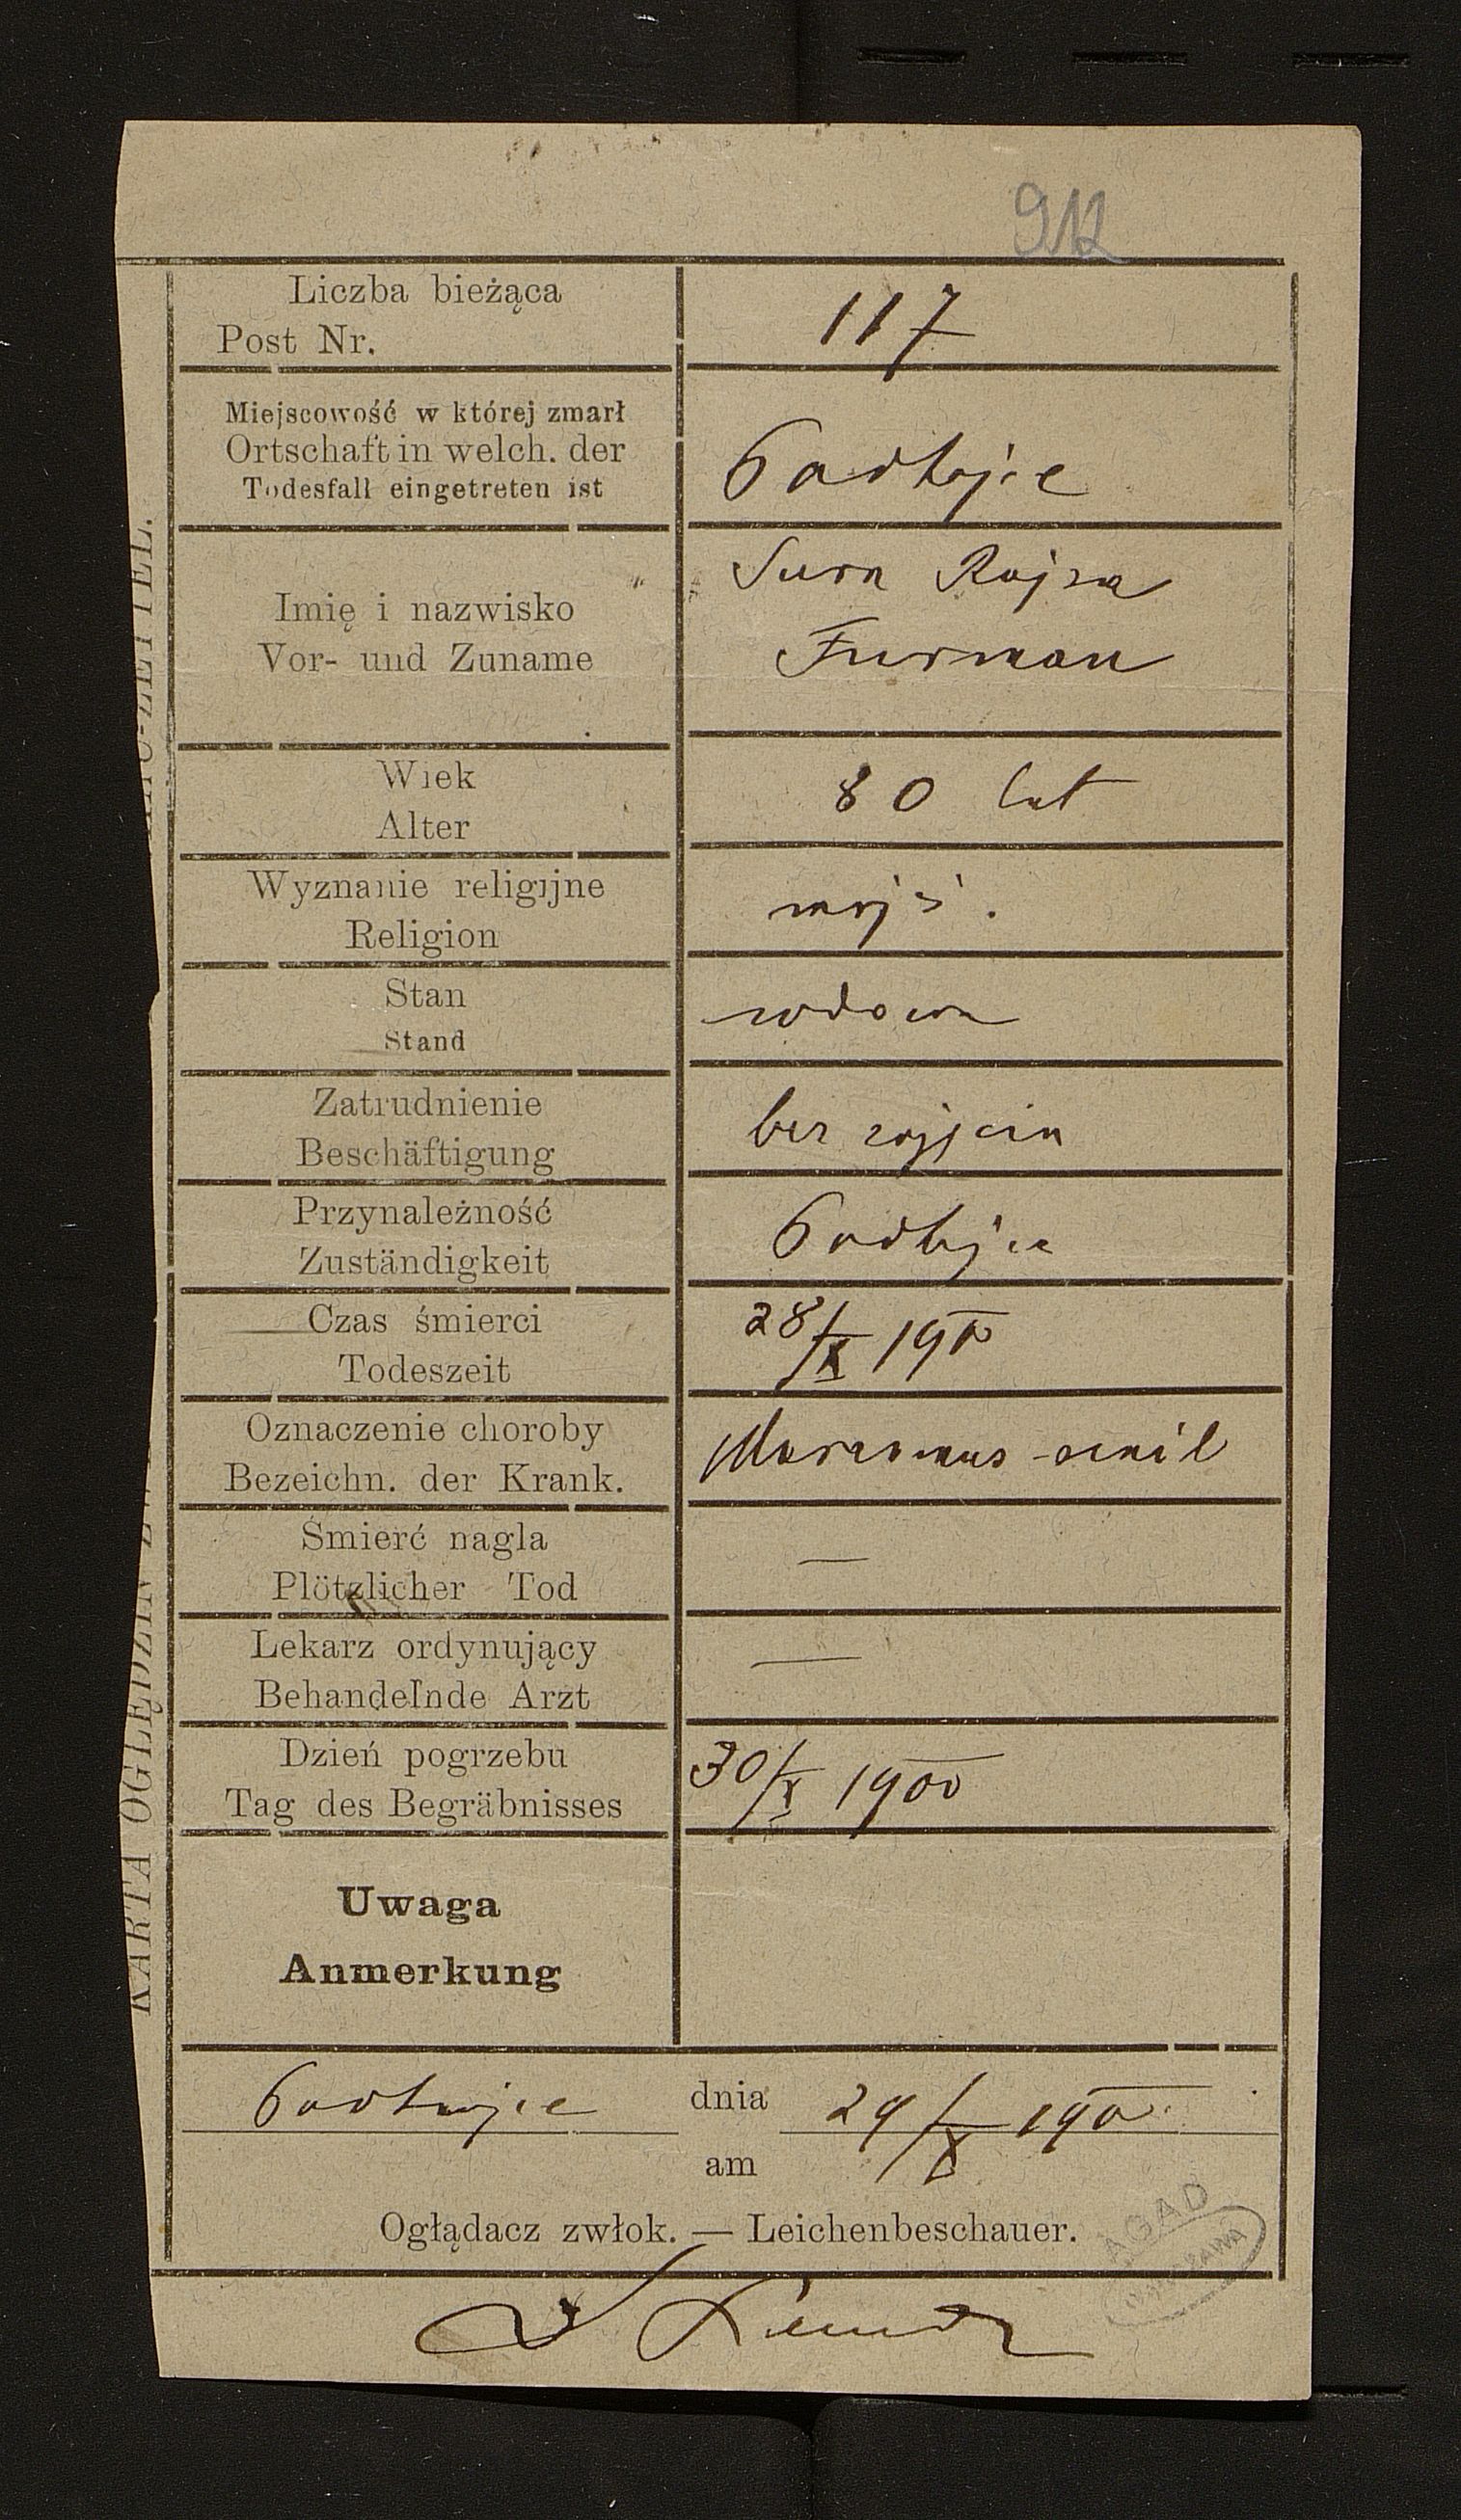 912
Liczba bieżąca
Post Nr.
117
Miejscowość w której zmarł
Ortschaft in welch. der
Todesfall eingetreten ist
Podhajce
Imię i nazwisko
Vor- und Zuname
Sura Rojza
Furman
Wiek
Alter
80 lat
Wyznanie religijne
Religion
mojż.
Stan
Stand
wdowa
Zatrudnienie
Beschäftigung
bez zajęcia
Przynależność
Zuständigkeit
Podhajce
Czas śmierci
Todeszeit
28/X 1900
Oznaczenie choroby
Bezeichn. der Krank.
Marasmus senil
Śmierć nagla
Plötzlicher Tod
—
Lekarz ordynujący
Behandelnde Arzt
—
Dzień pogrzebu
Tag des Begräbnisses
30/X 1900
Uwaga
Anmerkung
Podhajce dnia 29/X 1900
am
Oglądacz zwłok. — Leichenbeschauer.
AGAD
WARSZAWA
KARTA OGLĘDZIN